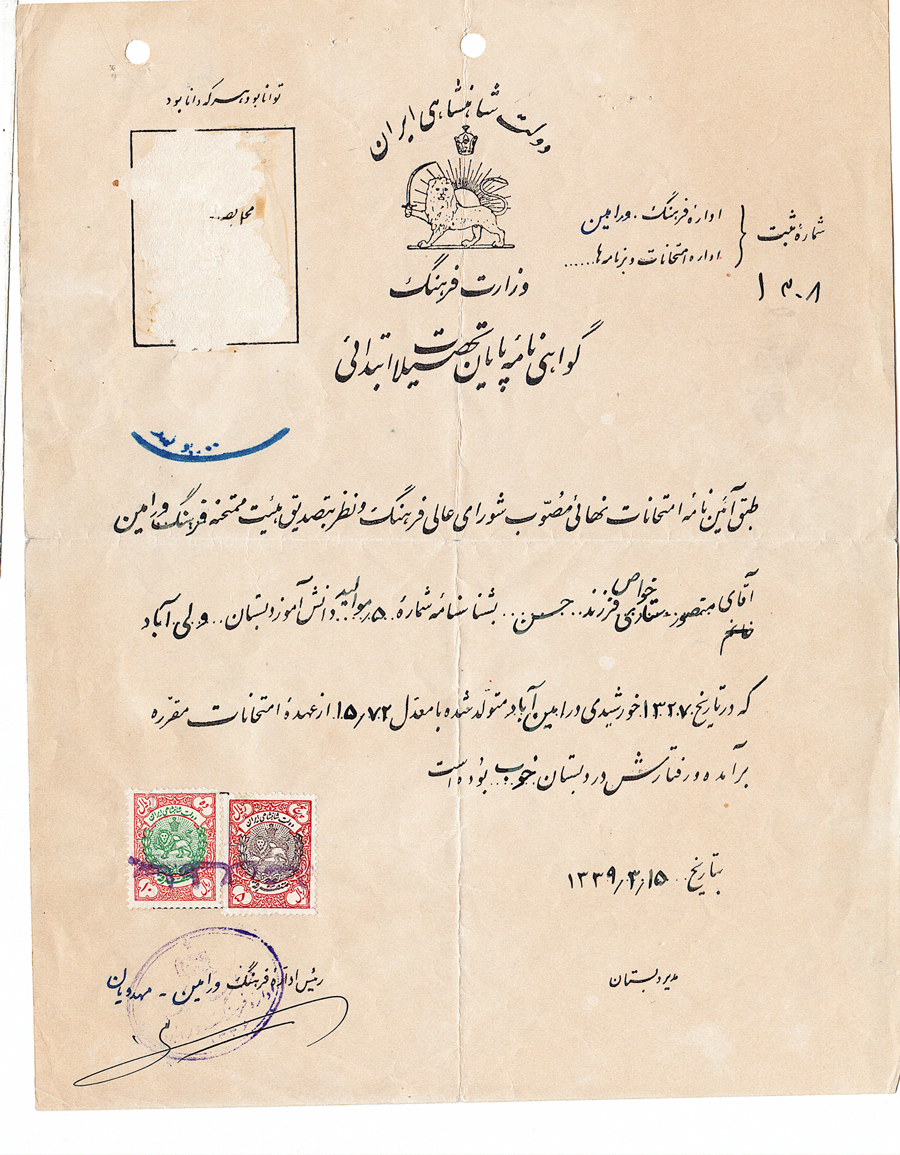 توانا بود هر که دانا بود
دولت شاهنشاهی ایران
شمارهٔ ثبت
ادارهٔ فرهنگ . ورامین
ادارهٔ امتحانات و برنامه‌ها......
۱۳۰۸
محل
وزارت فرهنگ
گواهی نامهٔ پایان تحصیلات ابتدائی
طبق آئین نامهٔ امتحانات نهائی مصوّب شورای عالی فرهنگ و نظر بتصدیق هیئت ممتحنه فرهنگ ورامین
آقای منصور ستاری خواص فرزند.. حسن... بشناسنامه شمارهٔ ۵ موالید دانش آموز دبستان.. ولی آباد
خانم
که در تاریخ ۱۳۲۷ خورشیدی در امین آباد متولّد شده با معدّل ۱۵٫۷۲ از عهدهٔ امتحانات مقرّره
برآمده و رفتارش در دبستان خوب بوده است
دولت شاهنشاهی ایران
ریال
۱۰
دولت شاهنشاهی ایران
ریال
۵
بتاریخ ۱۳۳۹٫۳٫۱۵
مدیر دبستان
رئیس ادارهٔ فرهنگ ورامین - مهدویان